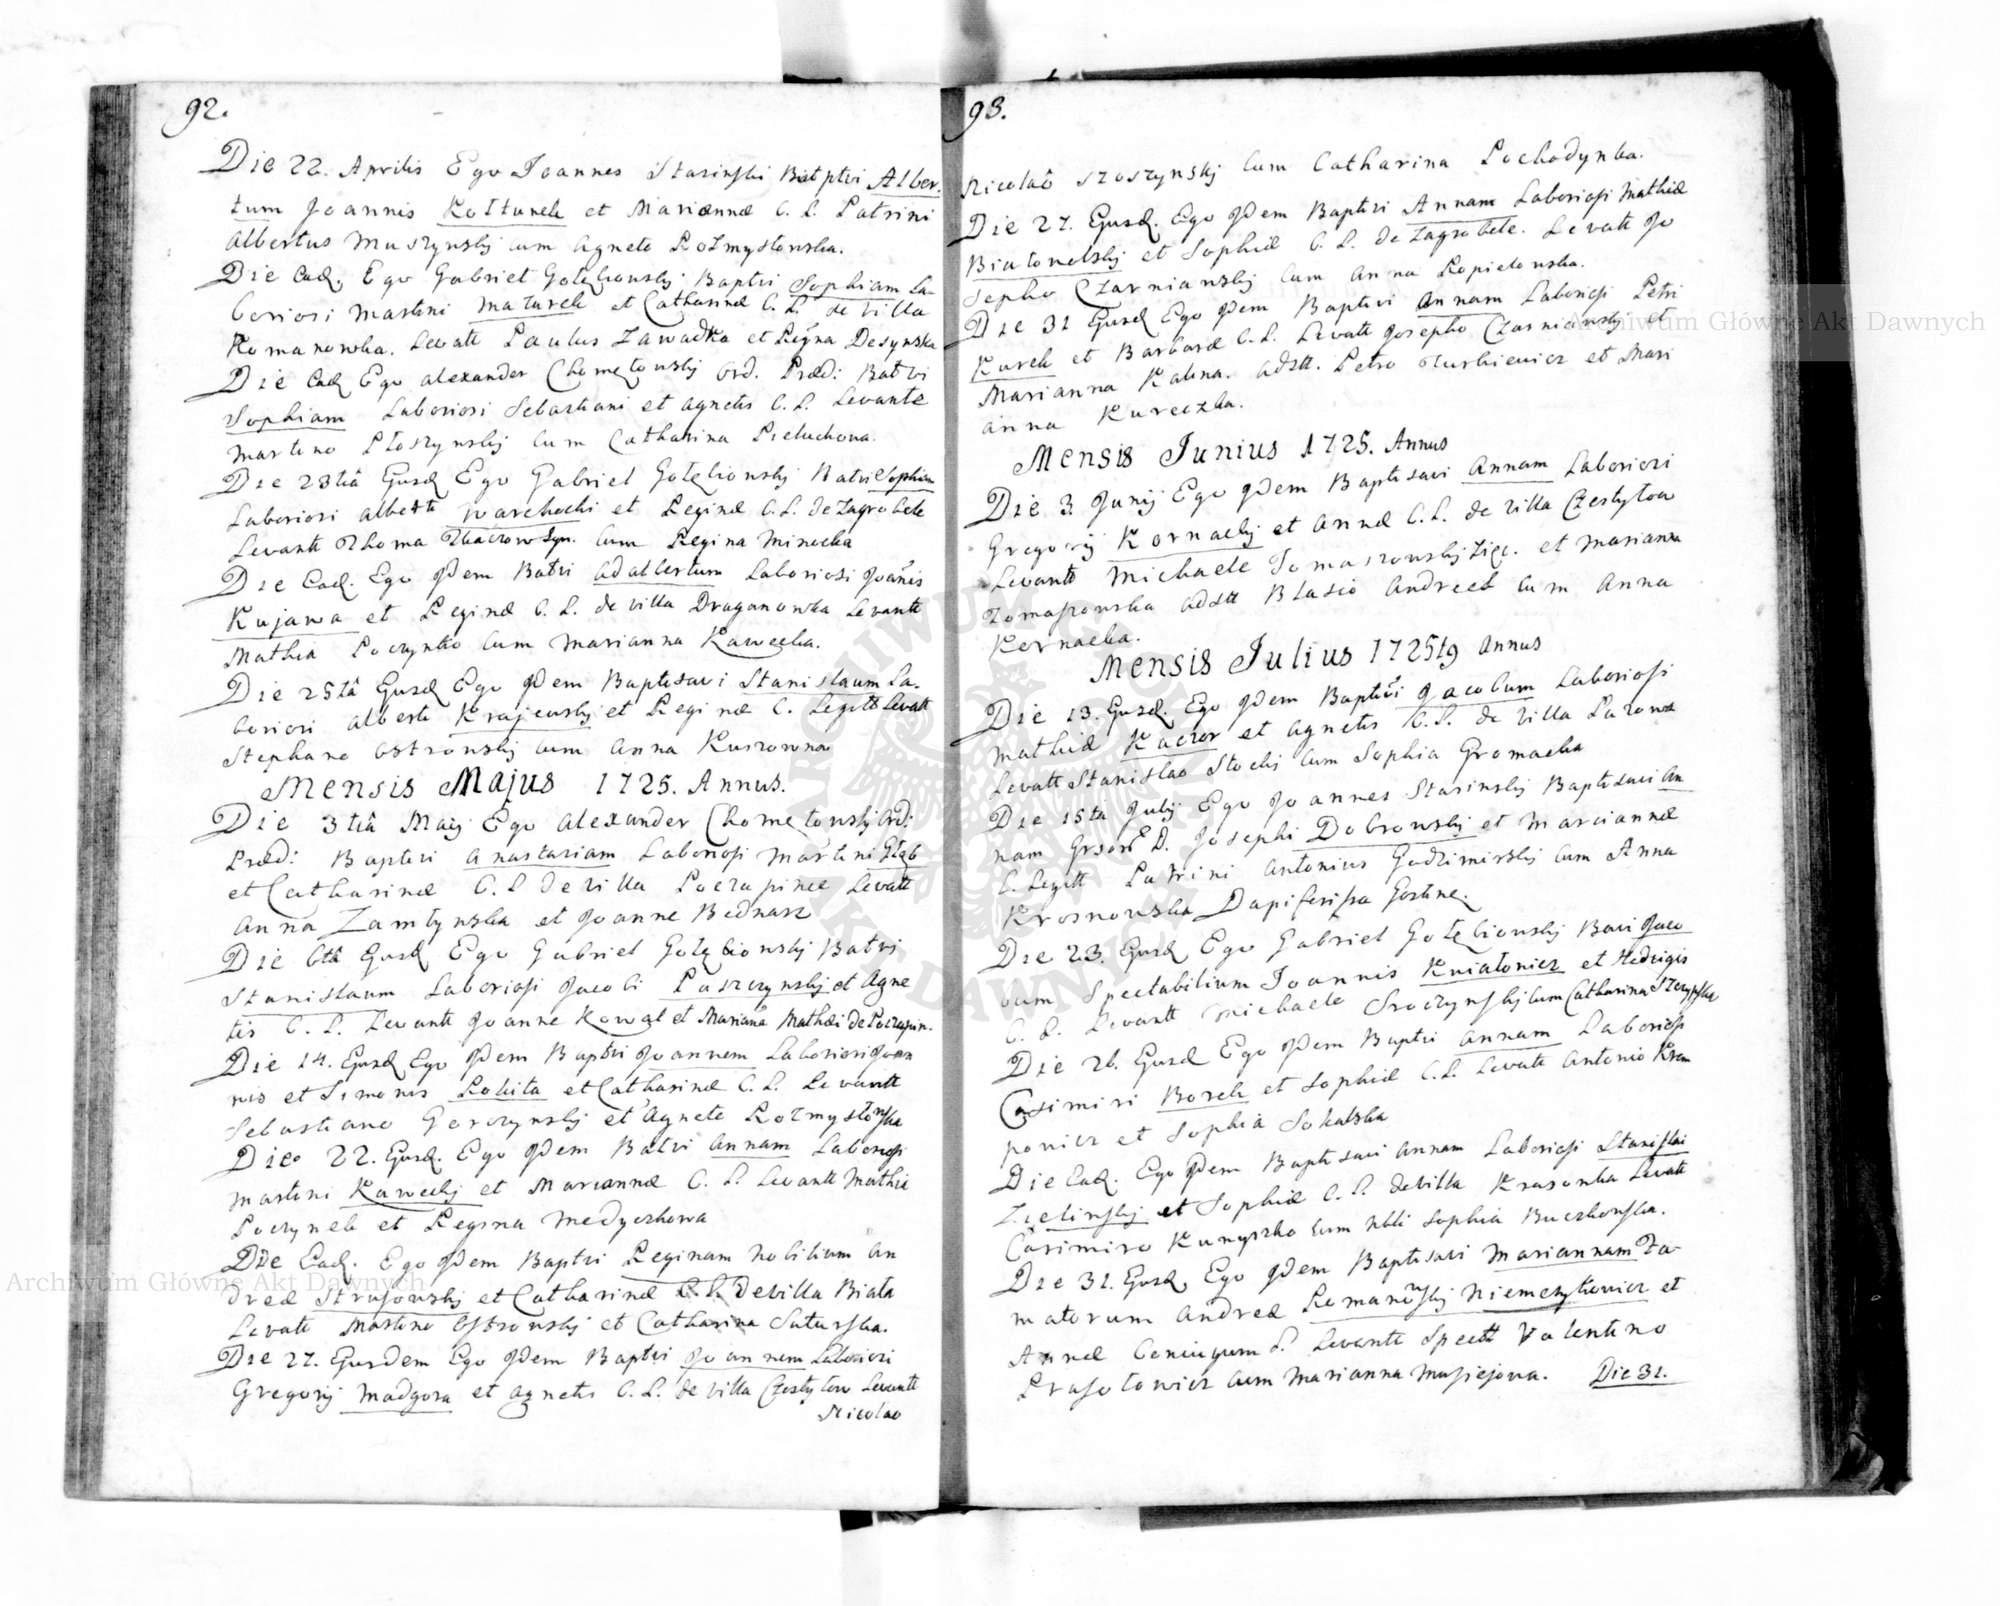 92.
Die 22. Aprilis Ego Joannes Stasinski Batptvi Alber-
tum Joannis Kołtunek et Mariannæ C. L. Patrini
Albertus Muszynskj cum Agneta Rozmysłowska.
Die Ead. Ego Gabriel Gołęciowskj Baptvi Sophiam La-
boriosi Martini Mazurek et Catharinæ C. L. de villa
Romanowka. Levatt Paulus Zawadka et Regina Desynska
Die Ead Ego Alexander Chomętowskj Ord. Præd: Batvi
Sophiam Laboriosi Sebastiani et Agnetis C. L. Levante
Martino Płoszynskj cum Catharina Pieluchowa.
Die 23tiâ Ejusd Ego Gabriel Gołęciowskj Batvi Sophiam
Laboriosi Alberti Warchocki et Reginæ C. L. de Zagrobele
Levantt Thoma cum Regina Minecka
Die Ead. Ego Idem Batvi Adalbertum Laboriosi Joanis
Kujawa et Reginæ C. L. de villa Draganowka Levantt
Mathia Poczynko cum Marianna Kawecka.
Die 25tâ Ejusd Ego Idem Baptisavi Stanislaum La-
boriosi Alberti Krajewskj et Reginæ C. Legitt Levatt
Stephano Ostrowskj cum Anna Kuszowna
Mensis Majus 1725. Annus.
Die 3tiâ Maij Ego Alexander Chomętowskj Ord:
Præd: Baptvi Anastasiam Laboriosi Martini Głąb
et Catharinæ C. L de villa Poczapince Levatt
Anna Zamłynska et Joanne Bednarz
Die 6tâ Ejusd Ego Gabriel Gołęciowskj Batvj
Stanislaum Laboriosi Jacobi Paszczynskj et Agne
tis C. L. Levantt Joanne Kowal et Mariana Mathæi de Poczapin.
Die 14. Ejusd Ego Idem Baptvi Joannem Laboriosi Joan
nis et Simonis Pokita et Catharinæ C. L. Levantt
Sebastiano Gorczynskj et Agnete Rozmysłowska
Die 22. Ejusd. Ego Idem Batvi Annam Laboriosi
Martini Kaweckj et Mariannæ C. L. Levantt Mathia
Poczynek et Regina Medyczkowa
Die Ead. Ego Idem Baptvi Reginam Nobilium An
dreæ Strusowskj et Catharinæ C. L. de villa Biała
Levatt Martino Ostrowskj et Catharina Saturska.
Die 27. Ejusdem Ego Idem Baptvi Joannem Laboriosi
Gregorij Madgora et Agnetis C. L. de villa Czestylow Levantt
Nicolao
93.
Nicolao Szoszynskj cum Catharina Pochodynka.
Die 27. Ejusd. Ego Idem Baptvi Annam Laboriosi Mathiæ
Białonelskj et Sophiæ C. L. de Zagrobele. Levatt Jo
sepho Czarnianskj cum Anna Kopielowska.
Die 31 Ejusd Ego Idem Baptvi Annam Laboriosi Petri
Kurek et Barbaræ C. L. Levatt Josepho Czarnianskj et
Marianna Kalina. Adstt. Petro Turkiewicz et Mari
anna Kureczka.
Mensis Junius 1725. Annus
Die 3 Junij Ego Idem Baptisavi Annam Laboriosi
Gregorij Kornackj et Annæ C. L. de villa Czestylow
Levantt Michaele Tomaszowskj et Marianna
Tomaszowska Adstt Blasio Andreek cum Anna
Kernacka.
Mensis Julius 1725tg Annus
Die 13. Ejusd. Ego Idem Baptvi Jacobum Laboriosi
Mathiæ Kaczor et Agnetis C. L. de villa Łazowa
Levatt Stanislao Stockj cum Sophia Gromacka
Die 15ta Julij Ego Joannes Stasinskj Baptisavi An
nam D. Josephi Dobrowskj et Mariannæ
C. Legitt Patrini Antonius Godzimirskj cum Anna
Krosnowska Dapiferissa
Die 23. Ejusd Ego Gabriel Gołęciowskj Bavi Jaco
bum Spectabilium Joannis Kniatowicz et Hedvigis
C. L. Levantt Michaele Sroczynskj cum Catharina
Die 26. Ejusd Ego Idem Baptvi Annam Laboriosi
Casimiri Borek et Sophiæ C. L. Levatt Antonio Krem
powicz et Sophia Sokalska
Die Ead. Ego Idem Baptisavi Annam Laboriosi Stanislai
Zielinskj et Sophiæ C. L. de villa Krasowka Levatt
Casimiro Kunyszko cum Nbli Sophia Buczkowska.
Die 31. Ejusd. Ego Idem Baptisavi Mariannam Fa-
matorum Andreæ Romanowskj Niemczykowicz et
Annæ Coniugum L. Levantt Spectt Valentino
Prasołowicz cum Marianna Musiejowa. Die 31.
Archiwum Główne Akt Dawnych
Archiwum Główne Akt Dawnych
ARCHIWUM GŁÓWNE AKT DAWNYCH